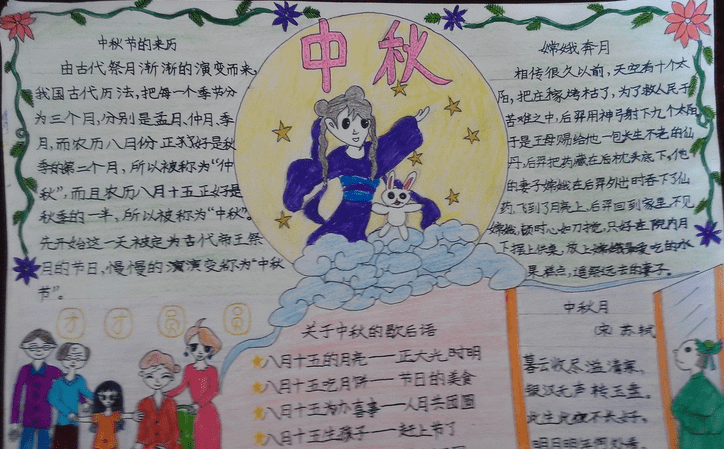 中秋
中秋节的来历
由古代祭月渐渐的演变而来,
我国古代历法,把每一个季节分
为三个月,分别是孟月、仲月、季
月,而农历八月份正好是秋
季的第二个月,所以被称为“仲
秋”,而且农历八月十五正好是
秋季的一半,所以被称为“中秋”。
先开始这一天被定为古代帝王祭
月的节日,慢慢的演演变称为“中秋
节”。
嫦娥奔月
相传很久以前,天空有十个太
阳,把庄稼烤枯了,为了救人民于
苦难之中,后羿用神弓射下九个太阳
于是王母赐给他一包长生不老的仙
丹,后羿把药藏在后枕头底下,他
的妻子嫦娥在后羿外出时吞下了仙
药,飞到了月亮上,后羿回到家里不见
嫦娥,顿时心如刀抢,只好在院内月
下摆上供桌,放上嫦娥最爱吃的水
果糕点,追祭远去的妻子。
团圆
关于中秋的歇后语
八月十五的月亮——正大光明
八月十五吃月饼——节日的美食
八月十五办喜事——人月共团圆
八月十五生孩子——赶上节了
中秋月
(宋)苏轼
暮云收尽溢清寒,
银汉无声转玉盘。
此生此夜不长好,
明月明年何处看。